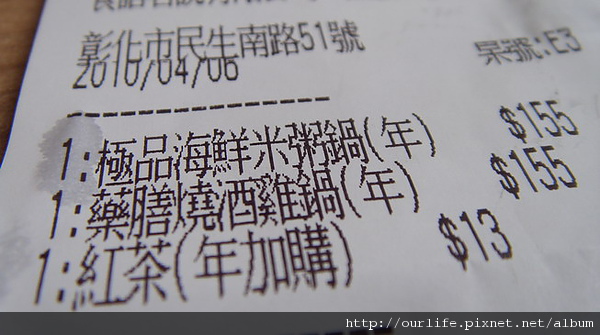 彰化市民生南路51號
2010/04/06
桌號:E3
--------------------
1:極品海鮮米粥鍋(年) $155
1:藥膳燒酒雞鍋(年) $155
1:紅茶(年加購) $13
http://ourlife.pixnet.net/album